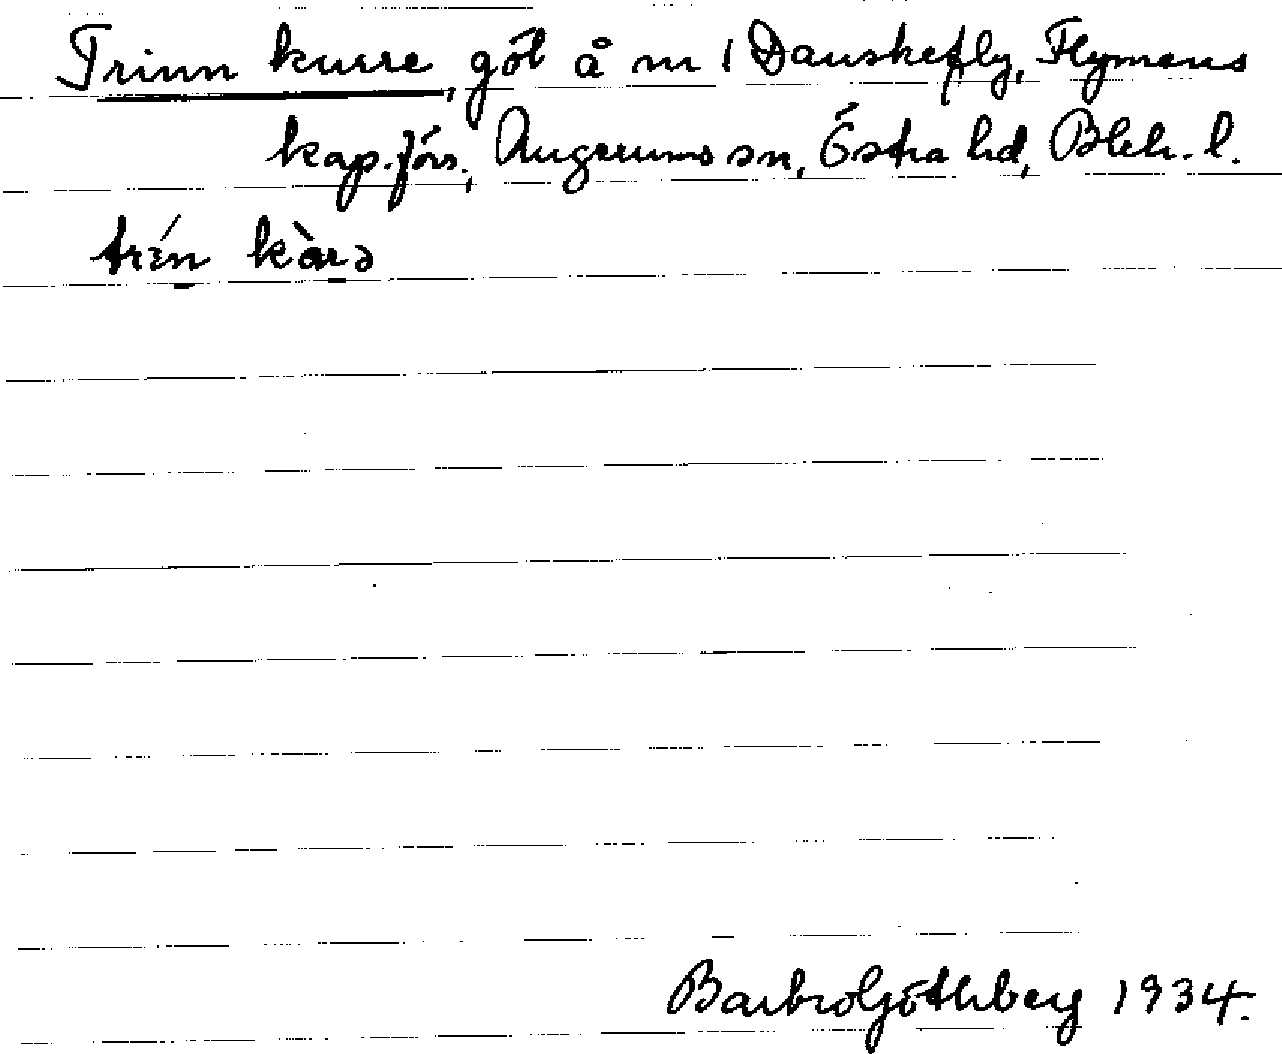 Trinn kurre, göl å m 1 Danskefly, Flymens
kap.förs., Augerums sn, Östra hd, Blek. l.
trín kàrə
Barbro Göthberg 1934.